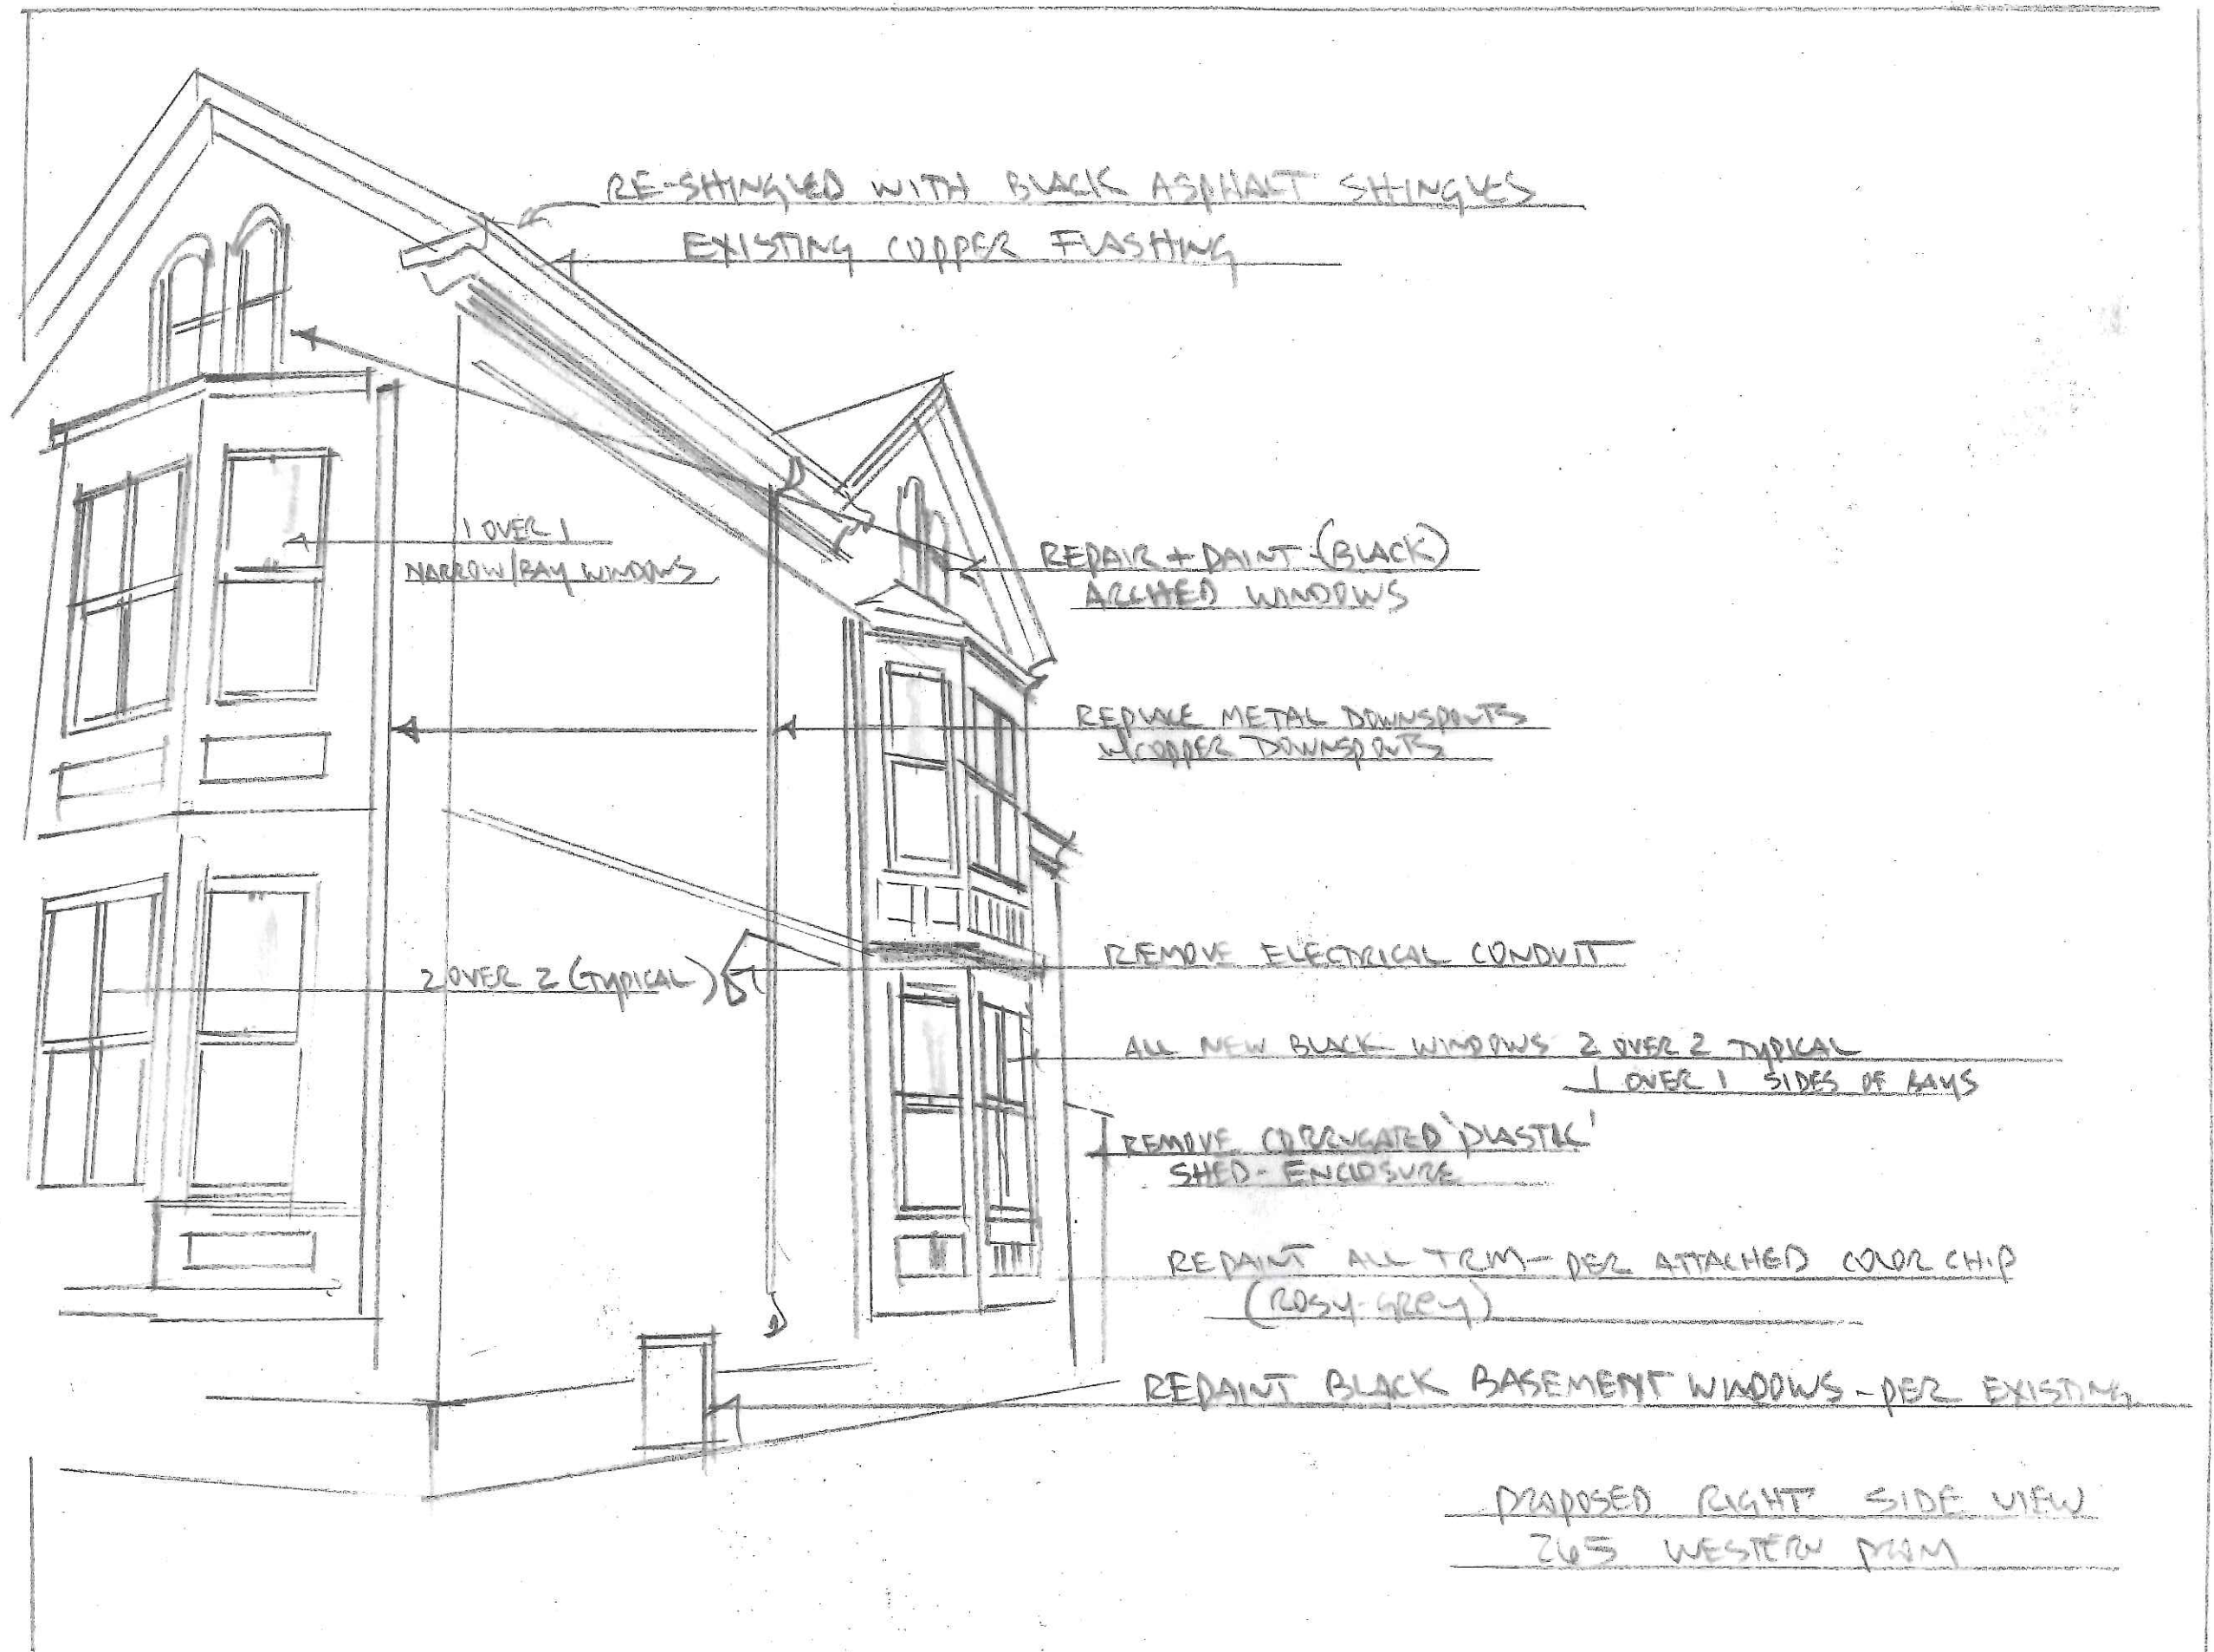 RE-SHINGLED WITH BLACK ASPHALT SHINGLES
EXISTING COPPER FLASHING
1 OVER 1
NARROW/BAY WINDOWS
REPAIR + PAINT (BLACK)
ARCHED WINDOWS
REPLACE METAL DOWNSPOUTS
W/COPPER DOWNSPOUTS
REMOVE ELECTRICAL CONDUIT
2 OVER 2 (TYPICAL)
ALL NEW BLACK WINDOWS 2 OVER 2 TYPICAL
1 OVER 1 SIDES OF BAYS
REMOVE CORRUGATED 'PLASTIC'
SHED-ENCLOSURE
REPAINT ALL TRIM- PER ATTACHED COLOR CHIP
(ROSY-GREY)
REPAINT BLACK BASEMENT WINDOWS - PER EXISTING
PROPOSED RIGHT SIDE VIEW
265 WESTERN PROM